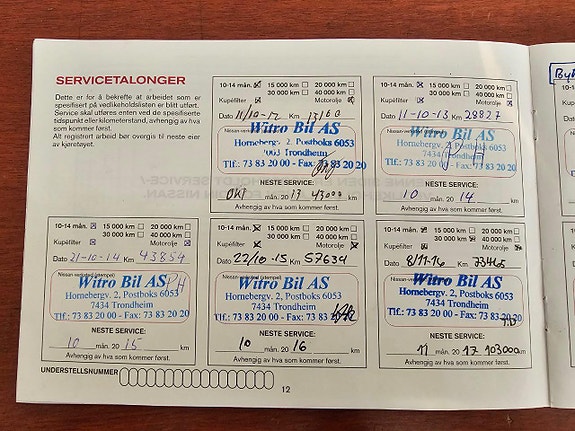 SERVICETALONGER
Dette er for å bekrefte at arbeidet som er
spesifisert på vedlikeholdslisten er blitt utført.
Service skal utføres enten ved de spesifiserte
tidspunkt eller kilometerstand, avhengig av hva
som kommer først.
Alt registrert arbeid bør overgis til neste eier
av kjøretøyet.
10-14 mån. 15 000 km 20 000 km
30 000 km 40 000 km
Kupéfilter Motorolje
Dato 11/10-12 Km
Witro Bil AS
Hornebergv. 2, Postboks 6053
7003 Trondheim
Tlf.: 73 83 20 00 - Fax: 73 83 20 20
NESTE SERVICE:
OKT 20 13 43000 km
Avhengig av hva som kommer først.
10-14 mån. 15 000 km 20 000 km
30 000 km 40 000 km
Kupéfilter Motorolje
Dato 11-10-13 Km 28827
Witro Bil AS
Hornebergv. 2, Postboks 6053
7434 Trondheim
Tlf.: 73 83 20 00 - Fax: 73 83 20 20
NESTE SERVICE:
10 mån. 20 14
Avhengig av hva som kommer først.
10-14 mån. 15 000 km 20 000 km
30 000 km 40 000 km
Kupéfilter Motorolje
Dato 21-10-14 Km 43854
Nissan-verksted (stempel)
Witro Bil AS PH
Hornebergv. 2, Postboks 6053
7434 Trondheim
Tlf.: 73 83 20 00 - Fax: 73 83 20 20
NESTE SERVICE:
10 mån. 20 15 km
Avhengig av hva som kommer først.
10-14 mån. 15 000 km 20 000 km
30 000 km 40 000 km
Kupéfilter Motorolje
Dato 22/10-15 Km 57634
Witro Bil AS
Hornebergv. 2, Postboks 6053
7434 Trondheim
Tlf.: 73 83 20 00 - Fax: 73 83 20
NESTE SERVICE:
10 mån. 20 16 km
Avhengig av hva som kommer først.
10-14 mån. 15 000 km 20 000 km
30 000 km 40 000 km
Kupéfilter Motorolje
Dato 8/11-16 Km
Witro Bil AS
Hornebergv. 2, Postboks 6053
7434 Trondheim
Tlf.: 73 83 20 00 - Fax: 73 83 20 20
NESTE SERVICE:
11 mån. 20 17 103000 km
Avhengig av hva som kommer først.
UNDERSTELLSNUMMER
12